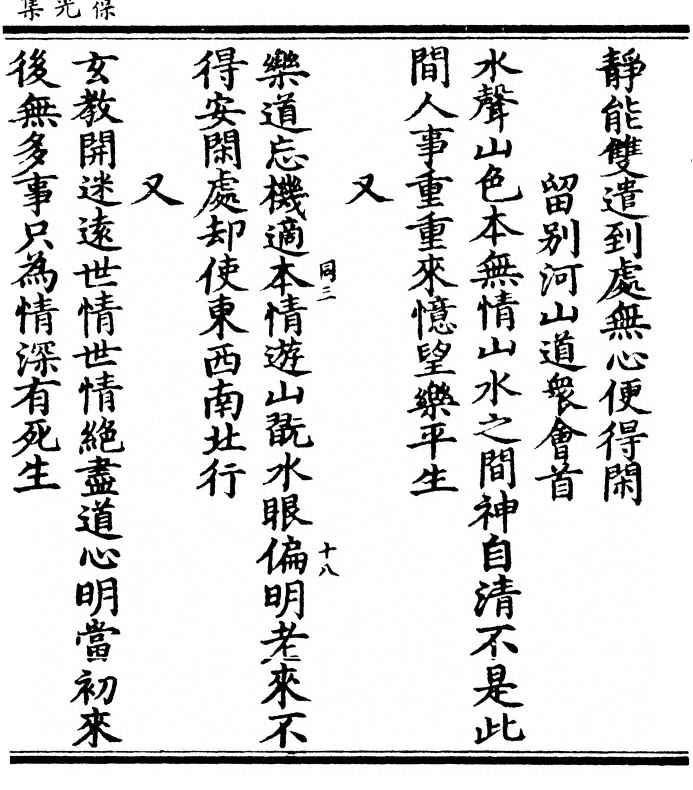 保光集
靜能雙遣到處無心便得閑
留別河山道衆會首
水聲山色本無情山水之間神自清不是此
間人事重重來憶望樂平生
又
同三 十八
樂道忘機適本情遊山翫水眼偏明老來不
得安閑處却使東西南北行
又
玄教開迷遠世情世情絕盡道心明當初來
後無多事只為情深有死生